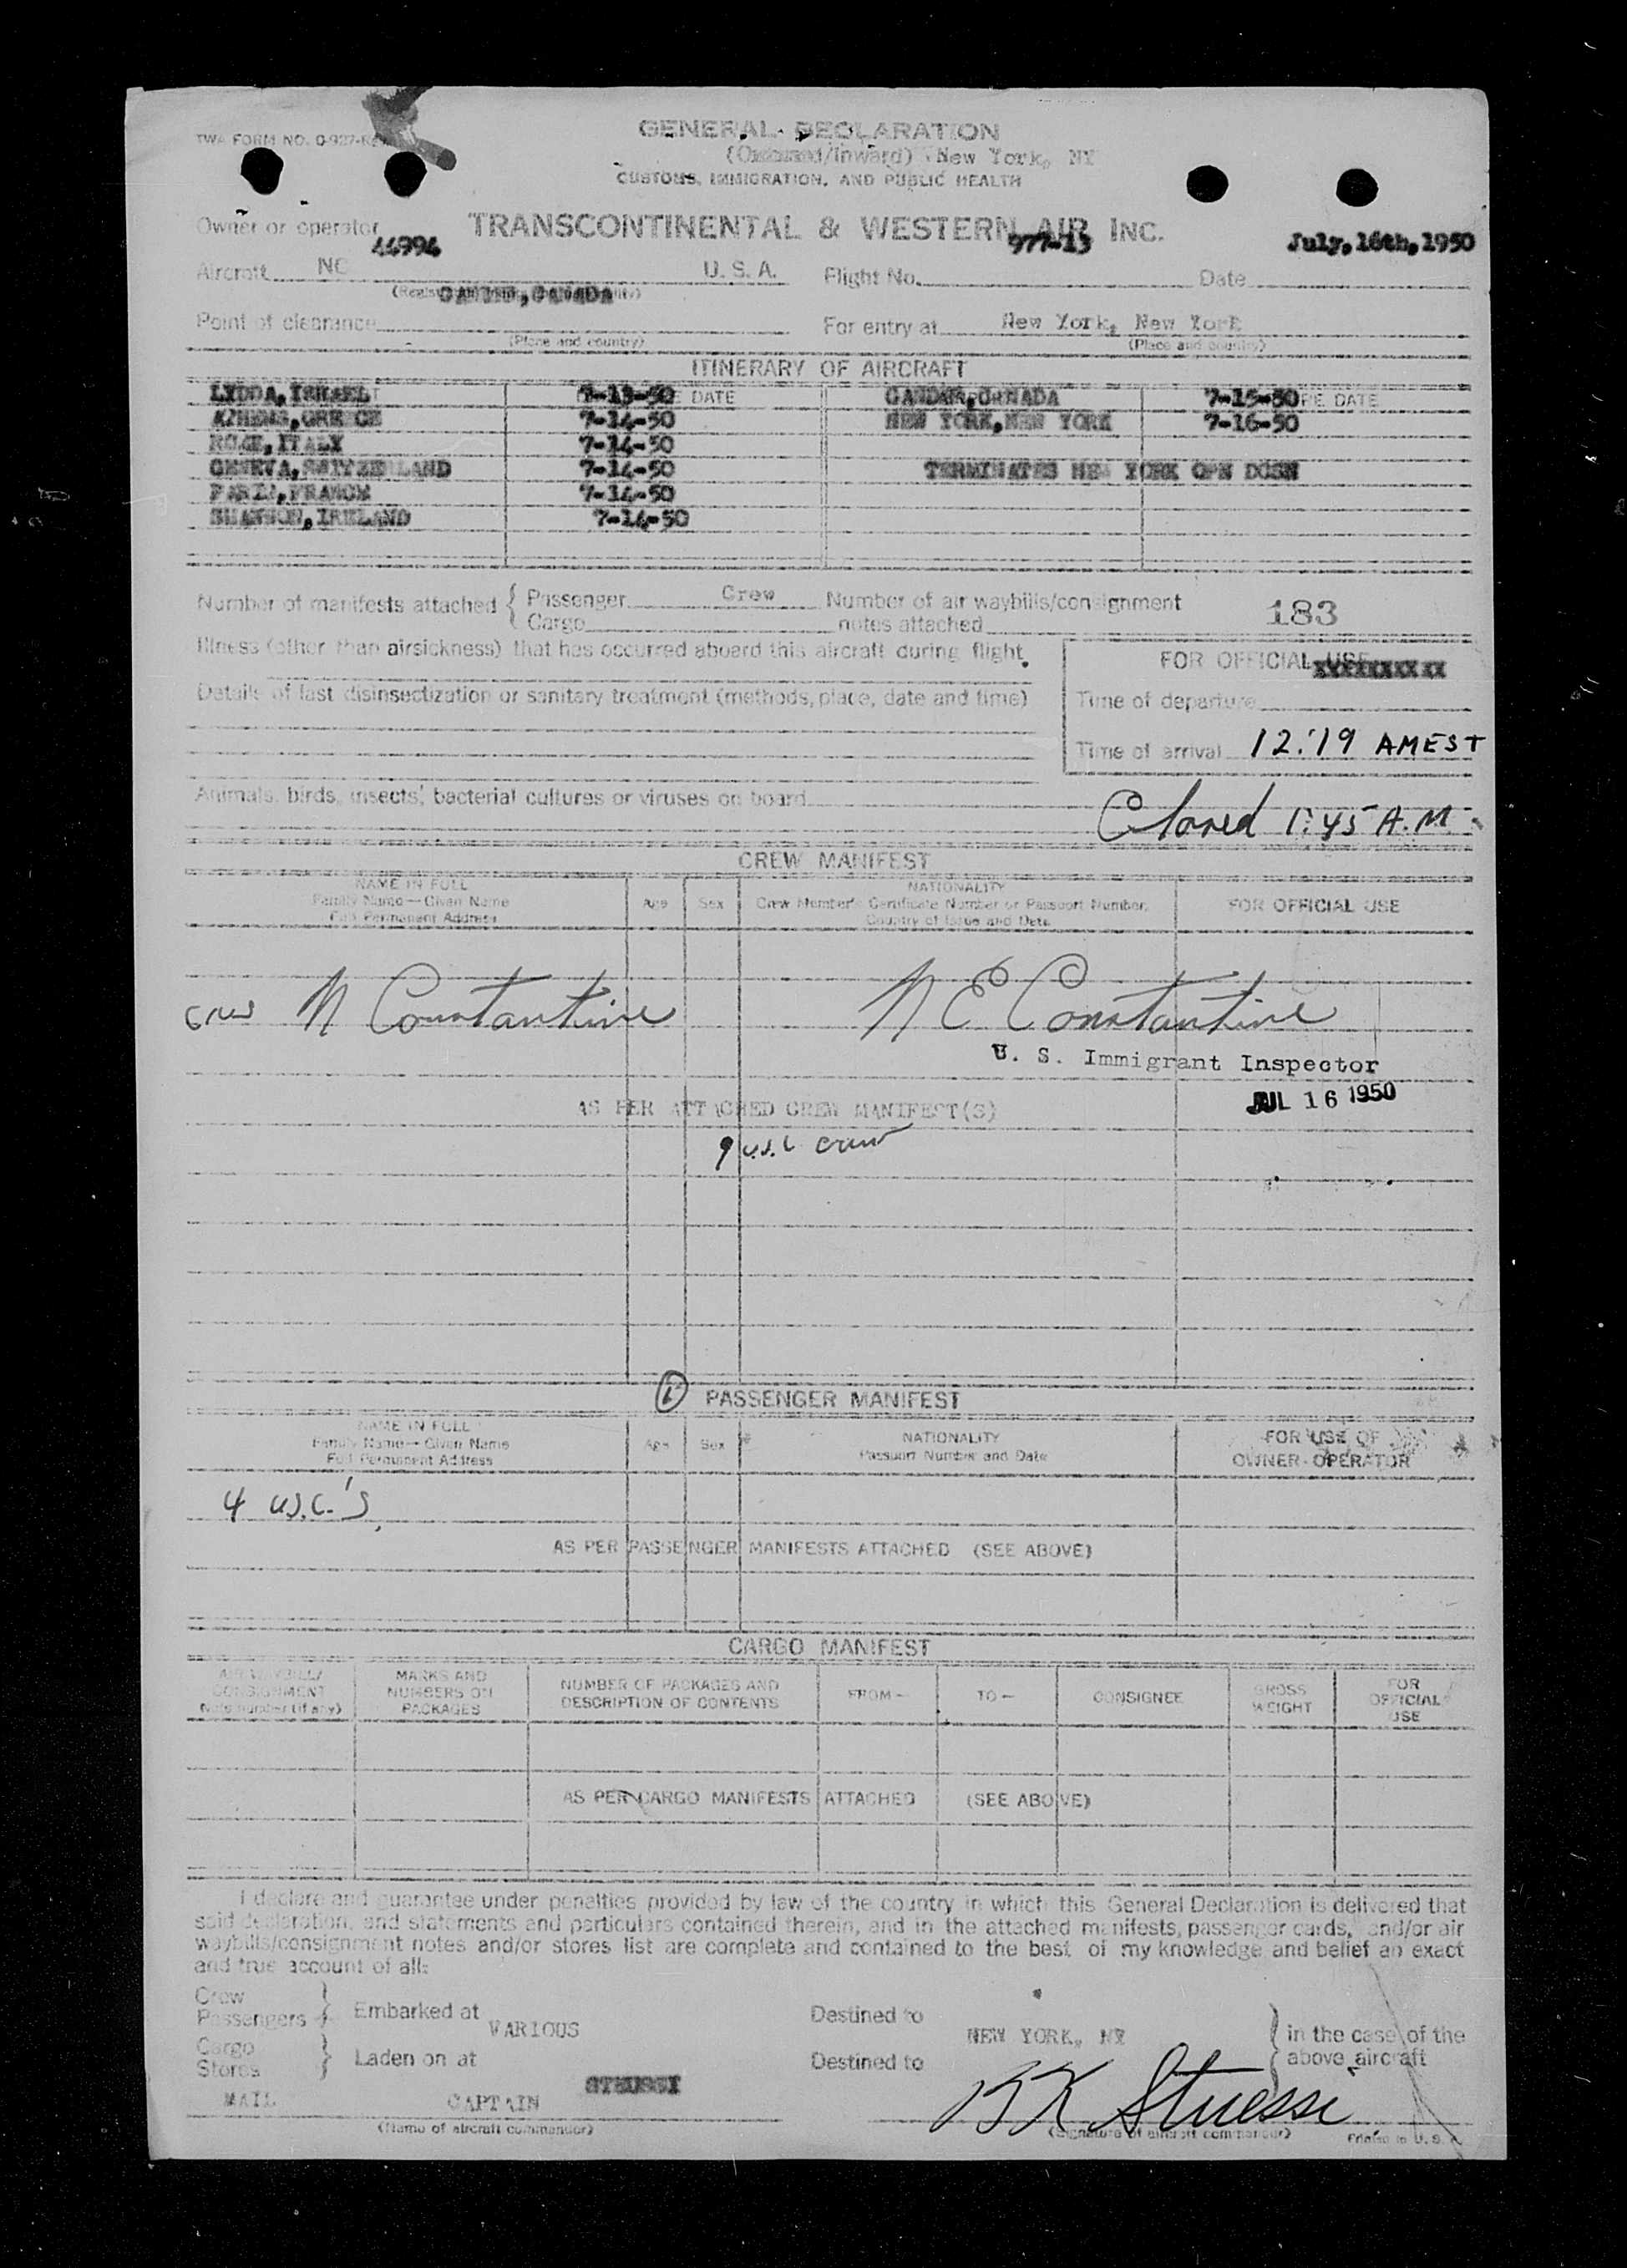 TWA FORM NO. 0-927-R
GENERAL DECLARATION
(Outward/Inward) New York, NY
CUSTOMS, IMMIGRATION, AND PUBLIC HEALTH
Owner or operator TRANSCONTINENTAL & WESTERN AIR INC.
44994 977-13 July, 16th, 1950
Aircraft NC U. S. A. Flight No. Date
CANADA
Point of clearance For entry at New York, New York
(Place and country) (Place and country)
ITINERARY OF AIRCRAFT
LYDDA, ISRAEL 7-13-50 DATE GANDER, CANADA 7-15-50 DATE
ATHENS, GREECE 7-14-50 NEW YORK, NEW YORK 7-16-50
ROME, ITALY 7-14-50
GENEVA, SWITZERLAND 7-14-50 TERMINATES NEW YORK OPN DOSN
7-14-50
SHANNON, IRELAND 7-14-50
Number of manifests attached { Passenger Crew Number of air waybills/consignment 183
Cargo notes attached
Illness (other than airsickness) that has occurred aboard this aircraft during flight.
FOR OFFICIAL USE XXXXXXXXXX
Details of last disinsectization or sanitary treatment (methods, place, date and time)
Time of departure
Time of arrival 12:19 AMEST
Animals, birds, insects, bacterial cultures or viruses on board
Clared 1:45 A.M.
CREW MANIFEST
NAME IN FULL
Family Name — Given Name
Full Permanent Address
Age Sex
NATIONALITY
Crew Member's Certificate Number or Passport Number,
Country of Issue and Date
FOR OFFICIAL USE
crew N Constantine N E Constantine
U. S. Immigrant Inspector
JUL 16 1950
AS PER ATTACHED CREW MANIFEST(S)
9 u.s.c crew
PASSENGER MANIFEST
NAME IN FULL
Family Name — Given Name
Full Permanent Address
Age Sex
NATIONALITY
Passport Number and Date
FOR USE OF
OWNER-OPERATOR
4 U.S.C.'S
AS PER PASSENGER MANIFESTS ATTACHED (SEE ABOVE)
CARGO MANIFEST
AIR WAYBILL/
CONSIGNMENT
Note number (if any)
MARKS AND
NUMBERS ON
PACKAGES
NUMBER OF PACKAGES AND
DESCRIPTION OF CONTENTS
FROM—
TO—
CONSIGNEE
GROSS
WEIGHT
FOR
OFFICIAL
USE
AS PER CARGO MANIFESTS ATTACHED (SEE ABOVE)
I declare and guarantee under penalties provided by law of the country in which this General Declaration is delivered that
said declaration, and statements and particulars contained therein, and in the attached manifests, passenger cards, and/or air
waybills/consignment notes and/or stores list are complete and contained to the best of my knowledge and belief an exact
and true account of all:
Crew
Passengers } Embarked at VARIOUS Destined to NEW YORK, NY } in the case of the
Cargo
Stores } Laden on at Destined to above aircraft
MAIL CAPTAIN STUESSI BK Stuessi
(Name of aircraft commander) (Signature of aircraft commander) Printed in U. S. A.